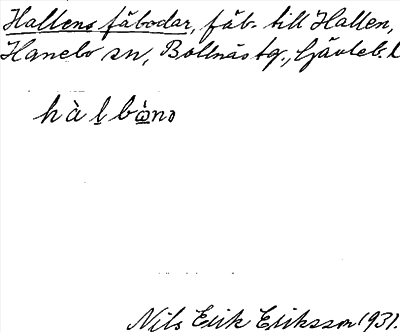 Hallens fäbodar, fäb. till Hallen,
Hanebo sn, Bollnäs tg., Gävleb. l
hà l̠ bὼno
Nils Erik Eriksson 1931.